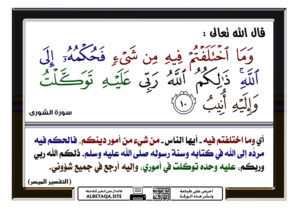 قال الله تعالى :
وَمَا ٱخْتَلَفْتُمْ فِيهِ مِن شَىْءٍ فَحُكْمُهُۥٓ إِلَى
ٱللَّهِ ۚ ذَٰلِكُمُ ٱللَّهُ رَبِّى عَلَيْهِ تَوَكَّلْتُ
وَإِلَيْهِ أُنِيبُ ١٠
سورة الشورى
أي وما اختلفتم فيه - أيها الناس - من شيء من أمور دينكم، فالحكم فيه
مرده إلى الله في كتابه وسنة رسوله صلى الله عليه وسلم. ذلكم الله ربي
وربكم، عليه وحده توكلت في أموري، وإليه أرجع في جميع شؤوني.
( التفسير الميسر )
ALBETAQA.SITE